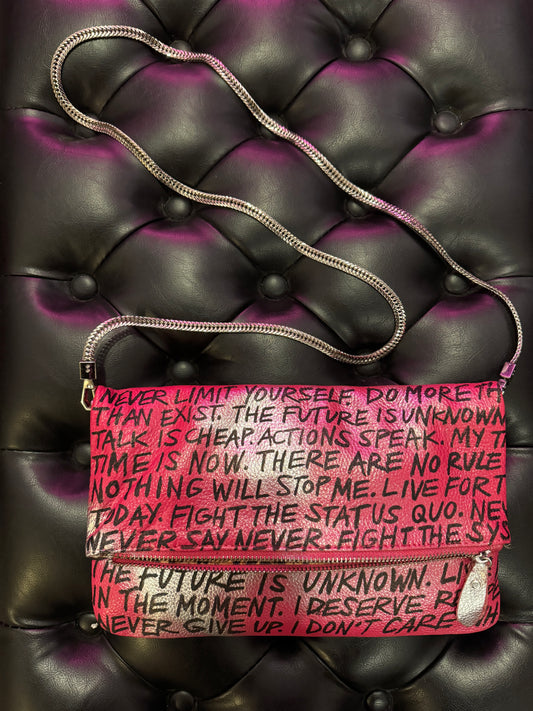 NEVER LIMIT YOURSELF. DO MORE TH
THAN EXIST. THE FUTURE IS UNKNOWN
TALK IS CHEAP. ACTIONS SPEAK. MY T
TIME IS NOW. THERE ARE NO RULE
NOTHING WILL STOP ME. LIVE FOR T
TODAY. FIGHT THE STATUS QUO. NEV
NEVER SAY NEVER. FIGHT THE SYS
THE FUTURE IS UNKNOWN. LI
IN THE MOMENT. I DESERVE RE
NEVER GIVE UP. I DON'T CARE